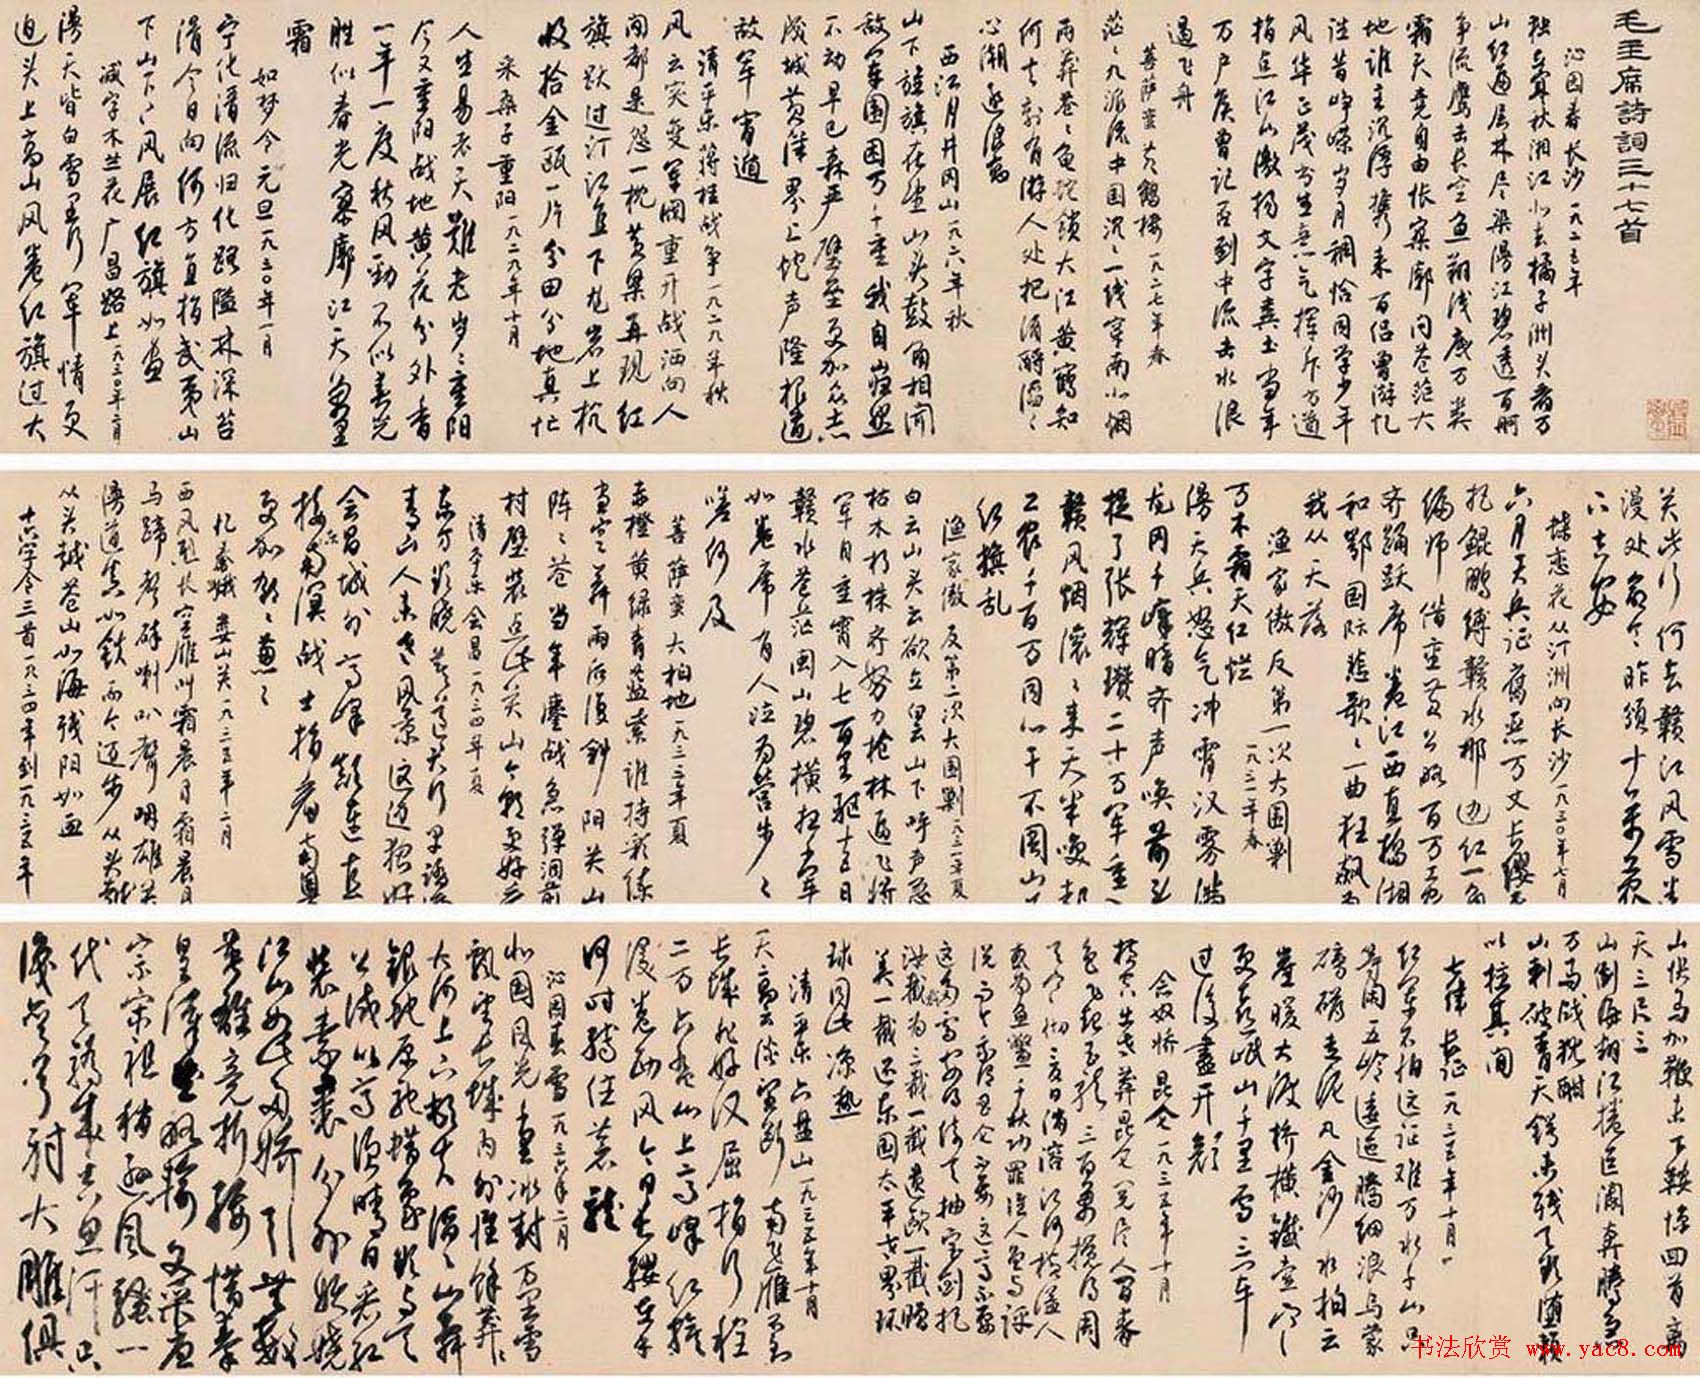 毛主席詩詞三十七首
沁园春 长沙 一九二五年
独立寒秋湘江北去橘子洲头看万
山红遍层林尽染漫江碧透百舸
争流鹰击长空鱼翔浅底万类
霜天竞自由怅寥廓问苍茫大
地谁主沉浮携来百侣曾游忆
往昔峥嵘岁月稠恰同学少年
风华正茂书生意气挥斥方遒
指点江山激扬文字粪土当年
万户侯曾记否到中流击水浪
遏飞舟
菩萨蛮 黄鹤楼 一九二七年春
茫々九派流中国沉々一线穿南北烟
雨莽苍々龟蛇锁大江黄鹤知
何去剩有游人处把酒酹滔々
心潮逐浪高
西江月 井冈山 一九二八年秋
山下旌旗在望山头鼓角相闻
敌军围困万千重我自岿然
不动早已森严壁垒更加众志
成城黄洋界上炮声隆报道
敌军宵遁
清平乐 蒋桂战争 一九二九年秋
风云突变军阀重开战洒向人
间都是怨一枕黄粱再现红
旗跃过汀江直下龙岩上杭
收拾金瓯一片分田分地真忙
采桑子 重阳 一九二九年十月
人生易老天难老岁々重阳
今又重阳战地黄花分外香
一年一度秋风劲不似春光
胜似春光寥廓江天万里
霜
如梦令 元旦 一九三〇年一月
宁化清流归化路隘林深苔
滑今日向何方直指武夷山
下山下々风展红旗如画
减字木兰花 广昌路上 一九三〇年二月
漫天皆白雪里行军情更
迫头上高山风卷红旗过大
关此行何去赣江风雪迷
漫处命令昨颁十万工农
下吉安
蝶恋花 从汀洲向长沙 一九三〇年七月
六月天兵征腐恶万丈长缨要
把鲲鹏缚赣水那边红一角
偏师借重黄公略百万工农
齐踊跃席卷江西直捣湖
和鄂国际悲歌々一曲狂飙为
我从天落
渔家傲 反第一次大围剿 一九三一年春
万木霜天红烂
漫天兵怒气冲霄汉雾满
龙冈千嶂暗齐声唤前头
捉了张辉瓒二十万军重入
赣风烟滚々来天半唤起
工农千百万同心干不周山下
红旗乱
渔家傲 反第二次大围剿 一九三一年夏
白云山头云欲立白云山下呼声急
枯木朽株齐努力枪林逼飞将
军自重霄入七百里驱十五日
赣水苍茫闽山碧横扫千军
如卷席有人泣为营步々
嗟何及
菩萨蛮 大柏地 一九三三年夏
赤橙黄绿青蓝紫谁持彩练
当空舞雨后复斜阳关山
阵々苍当年鏖战急弹洞前
村壁装点此关山今朝更好看
清平乐 会昌 一九三四年夏
东方欲晓莫道君行早踏遍
青山人未老风景这边独好
会昌城外高峰颠连直
接东溟战士指看南粤
更加郁々葱々
忆秦娥 娄山关 一九三五年二月
西风烈长空雁叫霜晨月霜晨月
马蹄声碎喇叭声咽雄关
漫道真如铁而今迈步从头越
从头越苍山如海残阳如血
十六字令三首 一九三四年到一九三五年
山快马加鞭未下鞍惊回首离
天三尺三
山倒海翻江卷巨澜奔腾急
万马战犹酣
山刺破青天锷未残天欲堕赖
以拄其间
七律 长征 一九三五年十月
红军不怕远征难万水千山只
等闲五岭逶迤腾细浪乌蒙
磅礴走泥丸金沙水拍云
崖暖大渡桥横铁索寒
更喜岷山千里雪三军
过后尽开颜
念奴娇 昆仑 一九三五年十月
横空出世莽昆仑阅尽人间春
色飞起玉龙三百万搅得周
天寒彻夏日消溶江河横溢人
或为鱼鳖千秋功罪谁人曾与评
说而今我谓昆仑不要这高不要
这多雪安得倚天抽宝剑把
汝裁为三截一截遗欧一截赠
美一截还东国太平世界环
球同此凉热
清平乐 六盘山 一九三五年十月
天高云淡望断南飞雁不到
长城非好汉屈指行程
二万六盘山上高峰红旗
漫卷西风今日长缨在手
何时缚住苍龙
沁园春 雪 一九三六年二月
北国风光千里冰封万里雪
飘望长城内外惟馀莽々
大河上下顿失滔々山舞
银蛇原驰蜡象欲与天
公试比高须晴日看红
装素裹分外妖娆
江山如此多娇引无数
英雄竞折腰惜秦
皇汉武略输文采唐
宗宋祖稍逊风骚一
代天骄成吉思汗只
识弯弓射大雕俱
书法欣赏 www.yac8.com